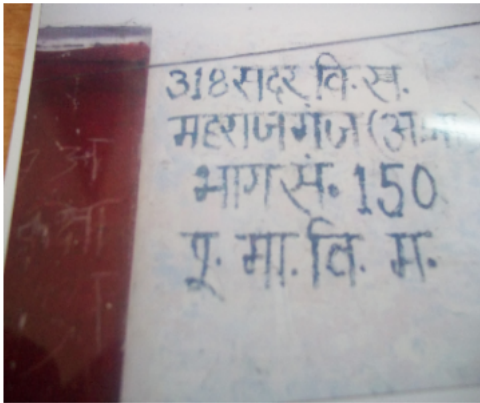 318 सदर वि. स.
महराजगंज (अ.जा.
भाग सं. 150
पू. मा. वि. म.